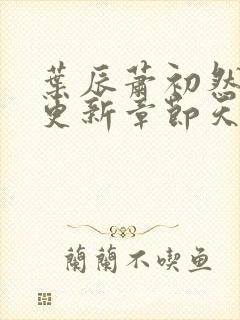 葉辰蕭初然
更新章節天
蘭蘭不喫鱼